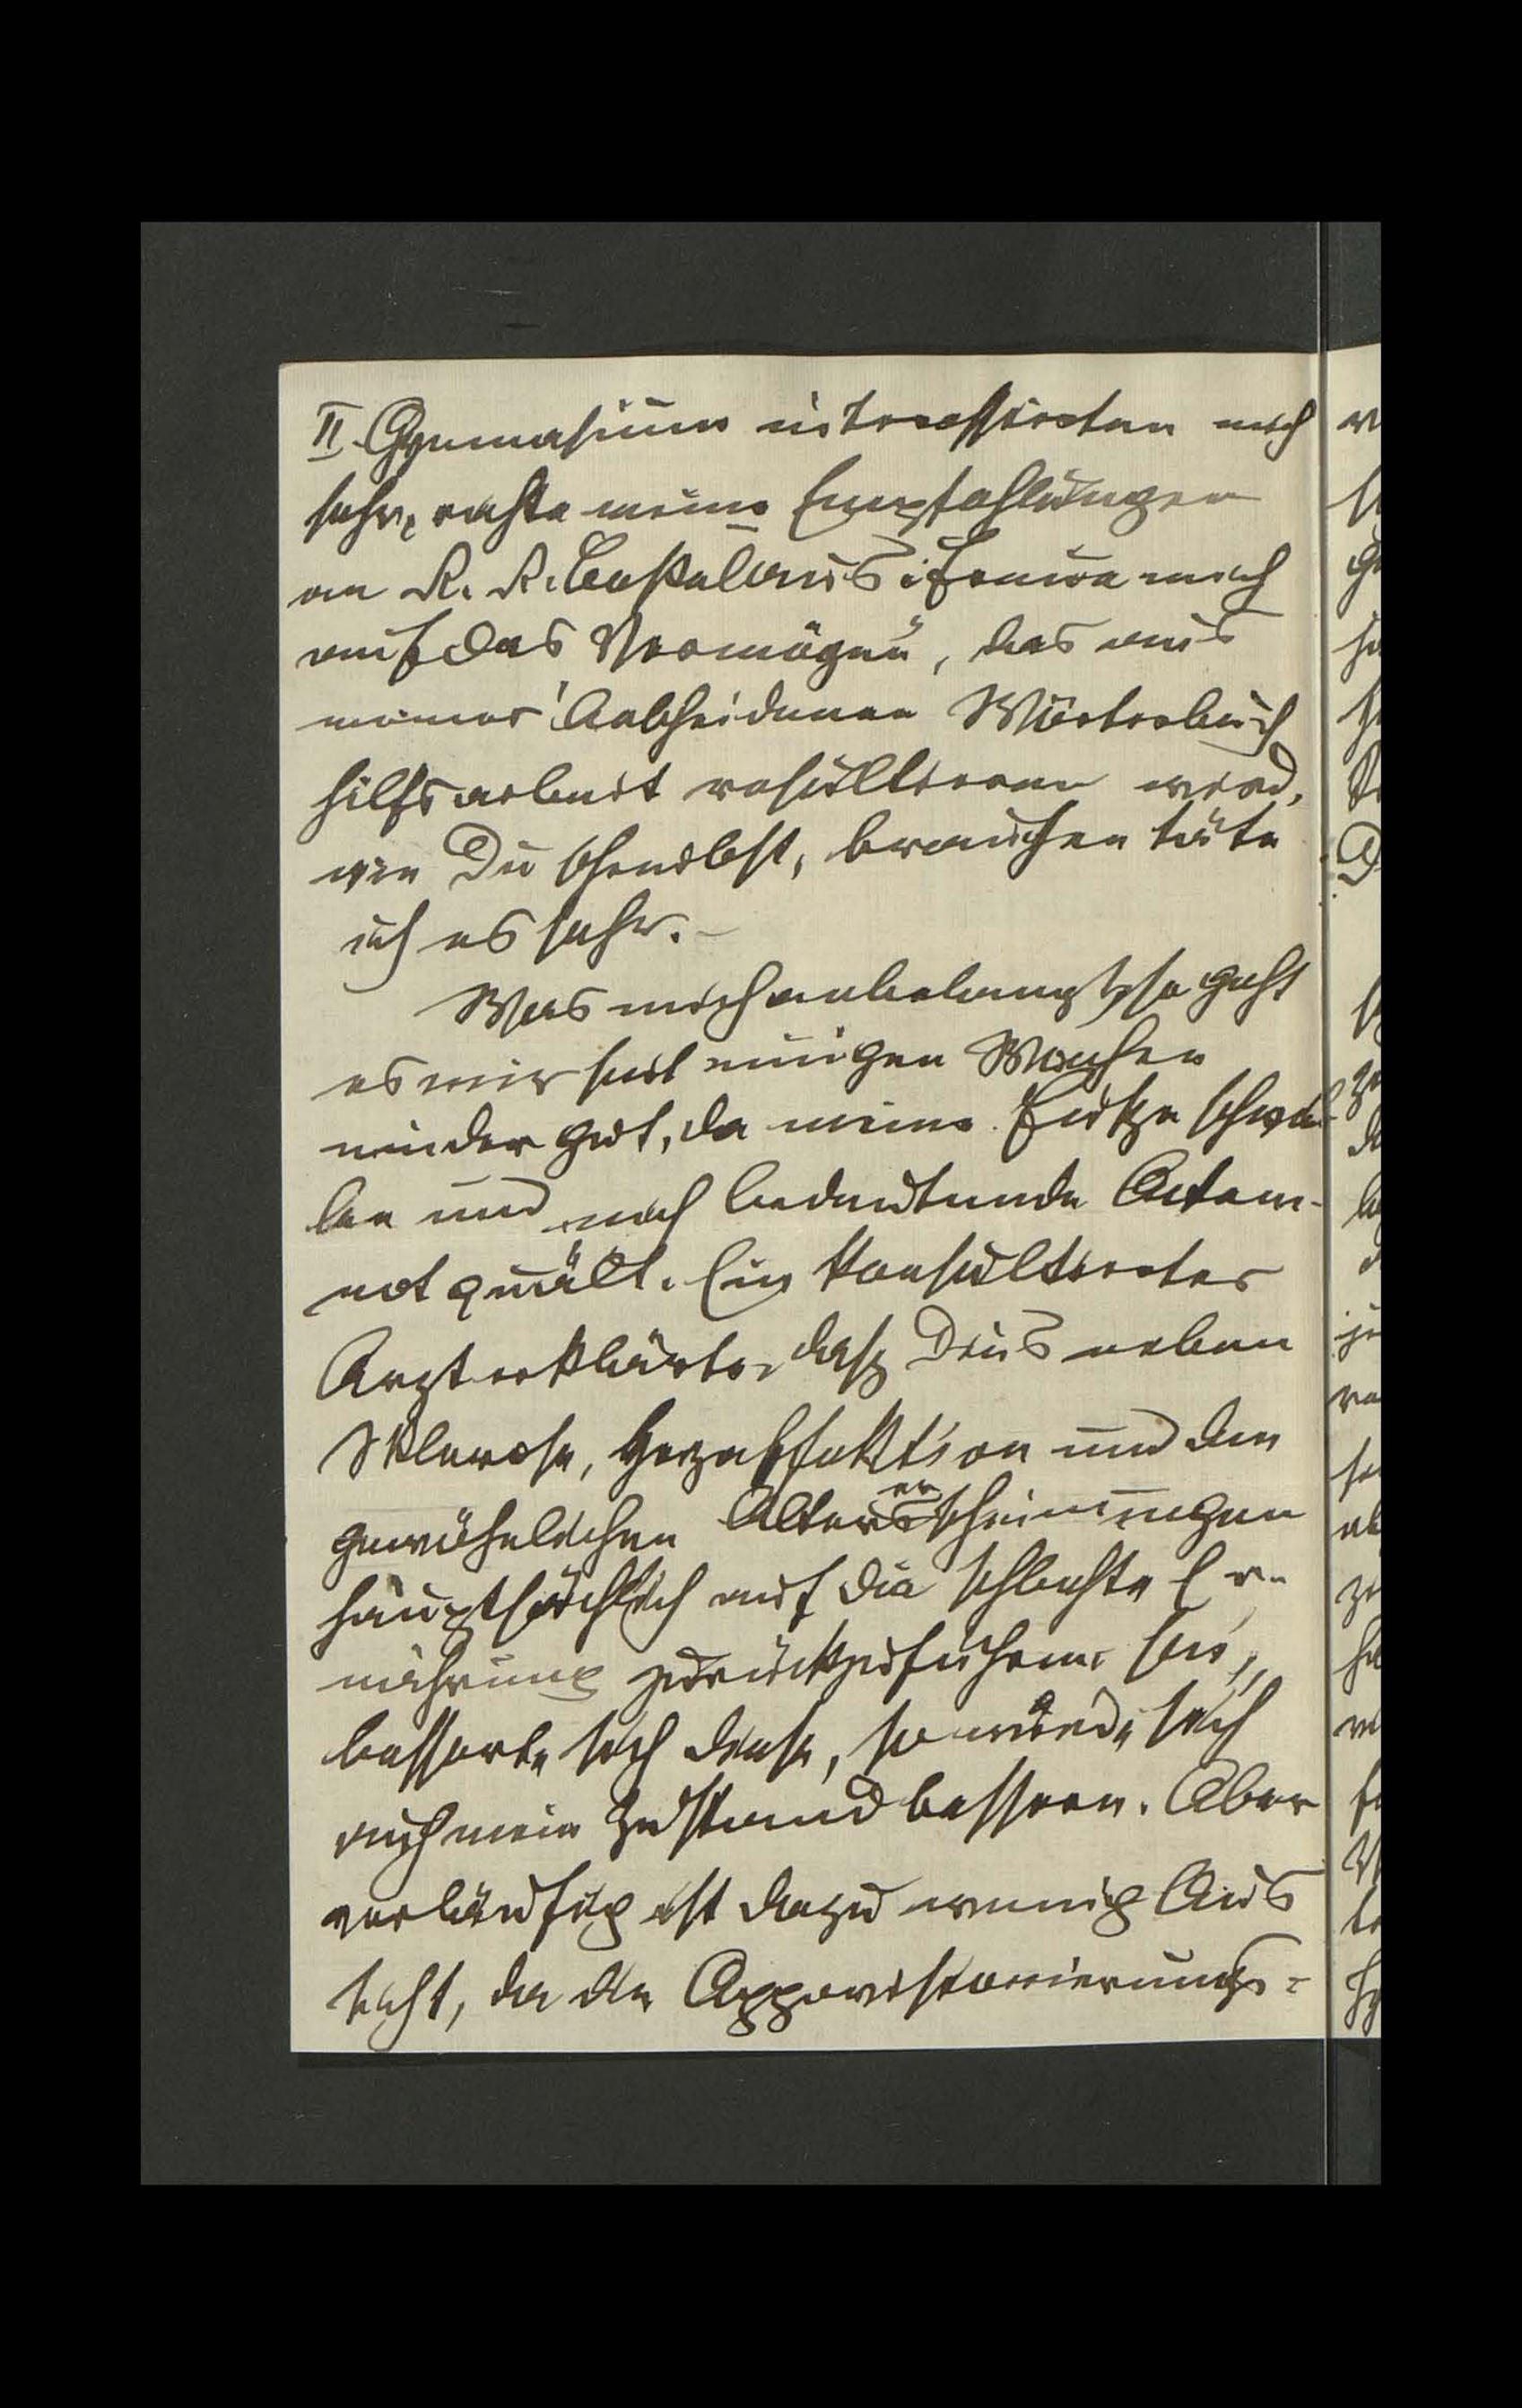 II. Gymnasium interessierten mich
sehr, richte meine Empfehlungen
an R. R. aus. Freue mich
auf das "Vermögen", das aus
meiner bescheidenen Wörterbuch
hilfsarbeit resultieren wird,
wie Du schreibst, brauchen täte
ich es sehr. –
Was mich anbelangt, so geht
es mir seit einigen Wochen
minder gut, da meine Füße schwel-
len und mich bedeutende Atem-
not quält. Ein konsultierter
Arzt erklärte, daß dies neben
Sklerose, Herzaffektion und den
gewöhnlichen Alterserscheinungen
hauptsächlich auf die schlechte Er-
nährung zurückzuführen sei,
besserte sich diese, so würde sich
auch mein Zustand bessern. Aber
vorläufig ist dazu wenig Aus
sicht, da die Approvisionierungs-